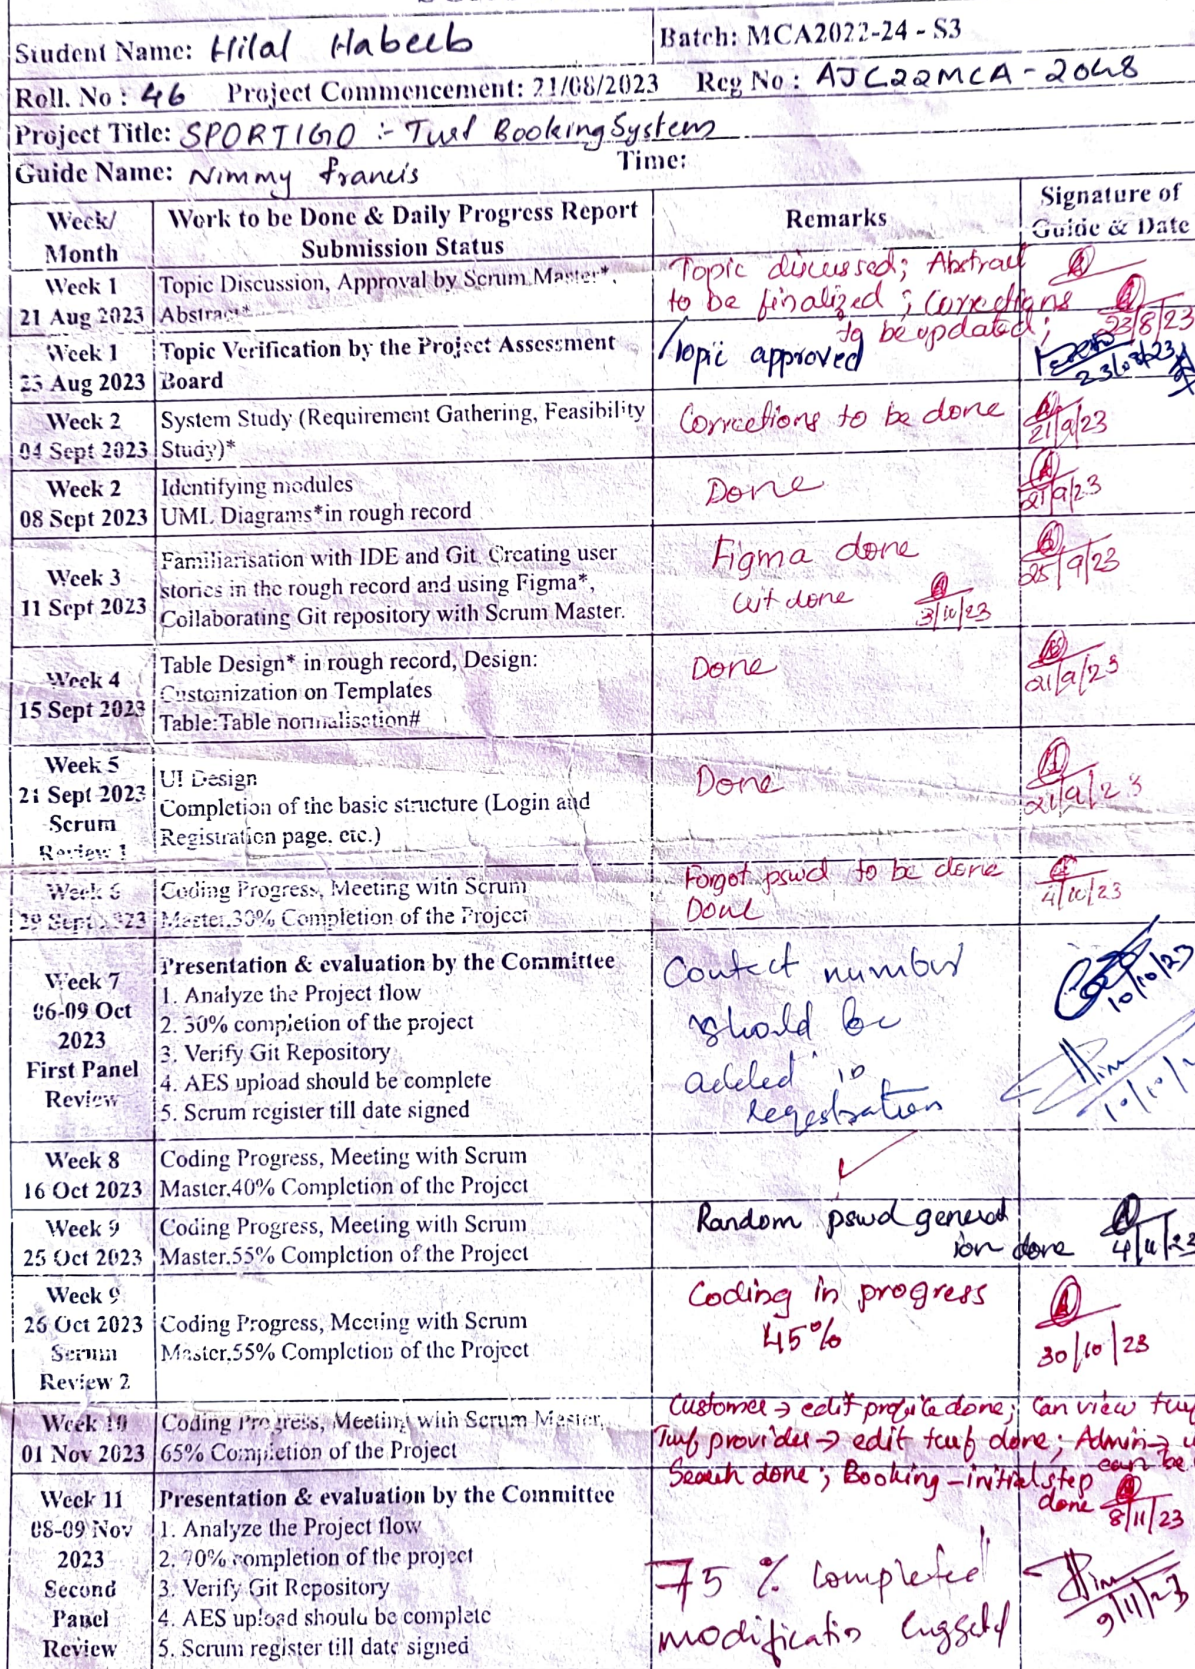 Student Name: Hilal Habeeb
Batch: MCA2022-24 - S3
Roll. No : 46 Project Commencement: 21/08/2023 Reg No : AJC22MCA-2048
Project Title: SPORTIGO :- Turf Booking System
Guide Name: Nimmy Francis Time:
Week/
Month
Work to be Done & Daily Progress Report
Submission Status
Remarks
Signature of
Guide & Date
Week 1
21 Aug 2023
Topic Discussion, Approval by Scrum Master*,
Abstract*
Topic discussed; Abstract
to be finalized ; Corrections
to be updated;
23/8/23
Week 1
23 Aug 2023
Topic Verification by the Project Assessment
Board
Topic approved
23/08/23
Week 2
04 Sept 2023
System Study (Requirement Gathering, Feasibility
Study)*
Corrections to be done
21/9/23
Week 2
08 Sept 2023
Identifying modules
UML Diagrams*in rough record
Done
21/9/23
Week 3
11 Sept 2023
Familiarisation with IDE and Git Creating user
stories in the rough record and using Figma*,
Collaborating Git repository with Scrum Master.
Figma done
Git done
3/10/23
25/9/23
Week 4
15 Sept 2023
Table Design* in rough record, Design:
Customization on Templates
Table:Table normalisation#
Done
21/9/23
Week 5
21 Sept 2023
Scrum
Review 1
UI Design
Completion of the basic structure (Login and
Registration page. etc.)
Done
21/9/23
Week 6
29 Sept 2023
Coding Progress, Meeting with Scrum
Master.30% Completion of the Project
Forgot pswd to be done
Done
4/10/23
Week 7
06-09 Oct
2023
First Panel
Review
Presentation & evaluation by the Committee
1. Analyze the Project flow
2. 30% completion of the project
3. Verify Git Repository
4. AES upload should be complete
5. Scrum register till date signed
Contact number
should be
added in
regestration
10/10/23
10/10/
Week 8
16 Oct 2023
Coding Progress, Meeting with Scrum
Master.40% Completion of the Project
Week 9
25 Oct 2023
Coding Progress, Meeting with Scrum
Master.55% Completion of the Project
Random pswd generat
ion done
4/11/23
Week 9
26 Oct 2023
Scrum
Review 2
Coding Progress, Meeting with Scrum
Master.55% Completion of the Project
Coding in progress
45%
30/10/23
Week 10
01 Nov 2023
Coding Progress, Meeting with Scrum Master.
65% Completion of the Project
Customer → edit profile done; Can view turf
Turf provider → edit turf done; Admin →
can be
Search done ; Booking - initial step
done
8/11/23
Week 11
08-09 Nov
2023
Second
Panel
Review
Presentation & evaluation by the Committee
1. Analyze the Project flow
2. 70% completion of the project
3. Verify Git Repository
4. AES upload should be complete
5. Scrum register till date signed
75 % completed
modification
9/11/23